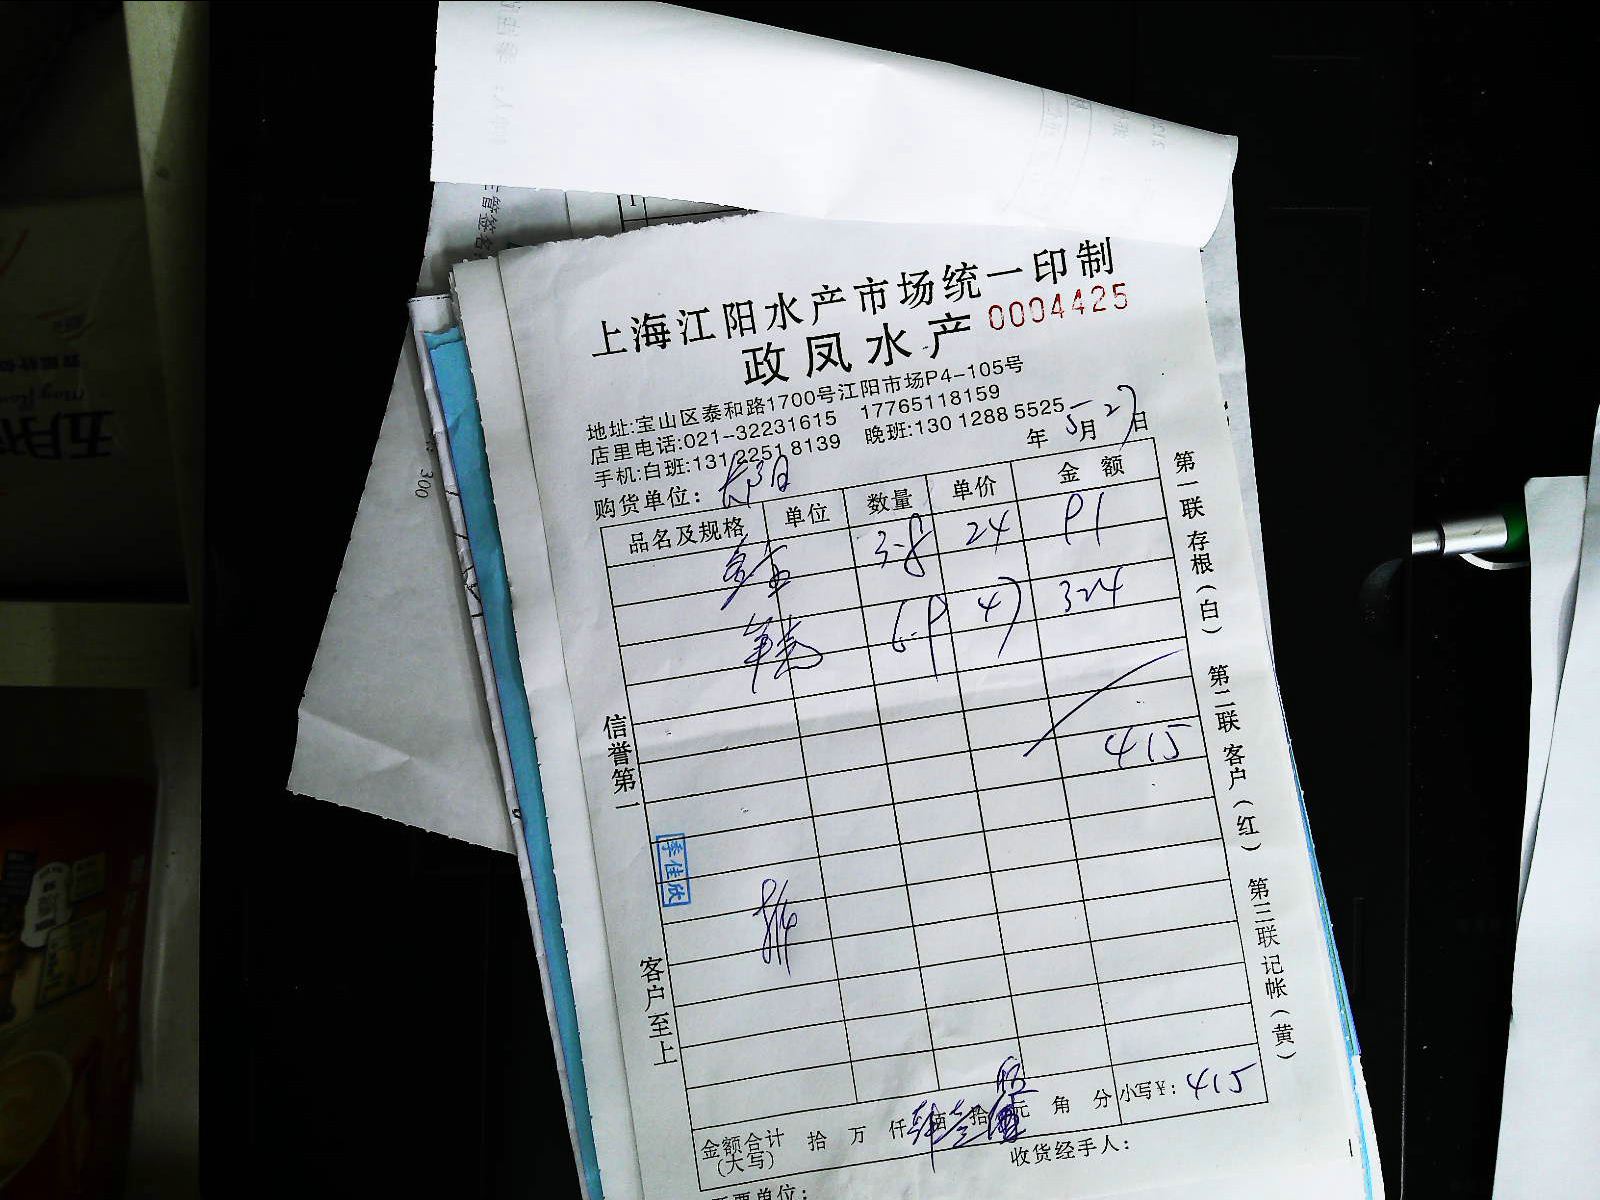 上海江阳水产市场统一印制
政凤水产 0004425
地址:宝山区泰和路1700号江阳市场P4-105号
店里电话:021-32231615 17765118159
手机:白班:13122518139 晚班:130 1288 5525
年 5月 27日
购货单位:
品名及规格 单位 数量 单价 金额
3.8 24 91
6.9 47 324
415
金额合计(大写) 拾 万 仟 佰 拾 元 角 分 小写¥: 415
收货经手人:
开票单位:
信誉第一
客户至上
季佳欣
第一联 存根(白)
第二联 客户(红)
第三联 记帐(黄)
300